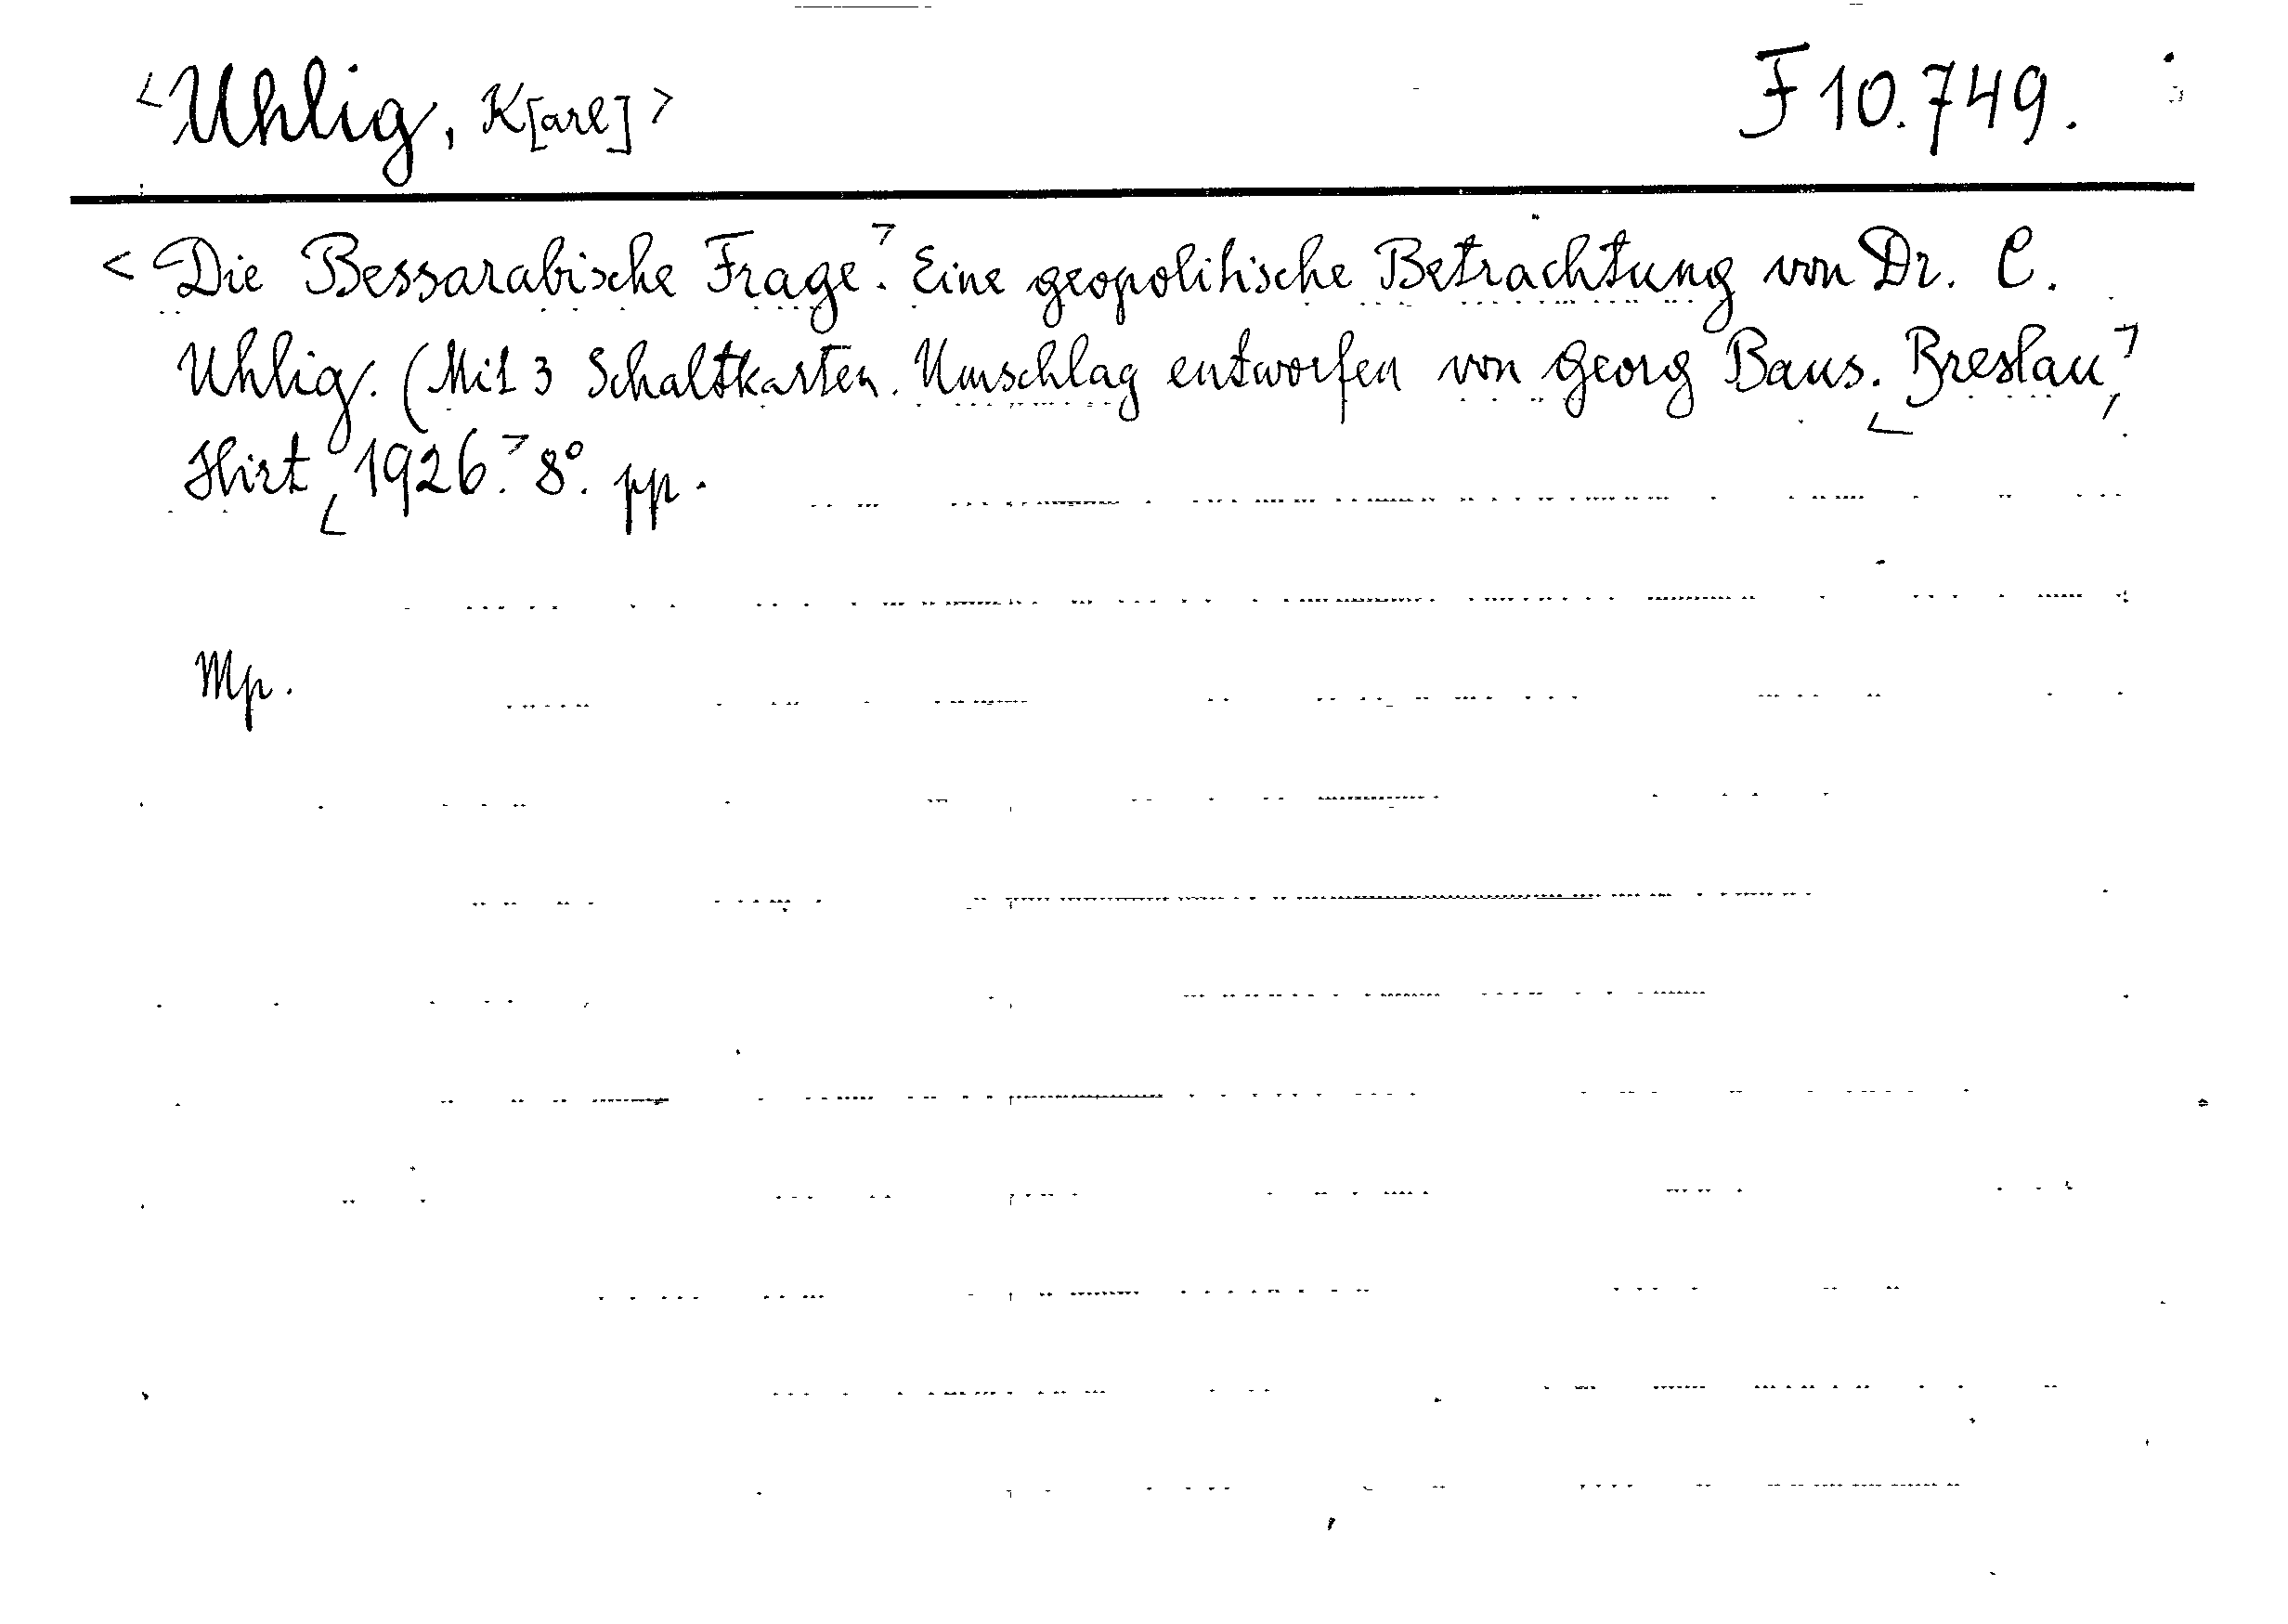 <Uhlig, K[arl]> F 10.749.
<Die Bessarabische Frage>. Eine geopolitische Betrachtung von Dr. C.
Uhlig. (Mit 3 Schaltkarten. Umschlag entworfen von Georg Baus. <Breslau>,
Hirt, <1926.> 8°. pp.
Mp.